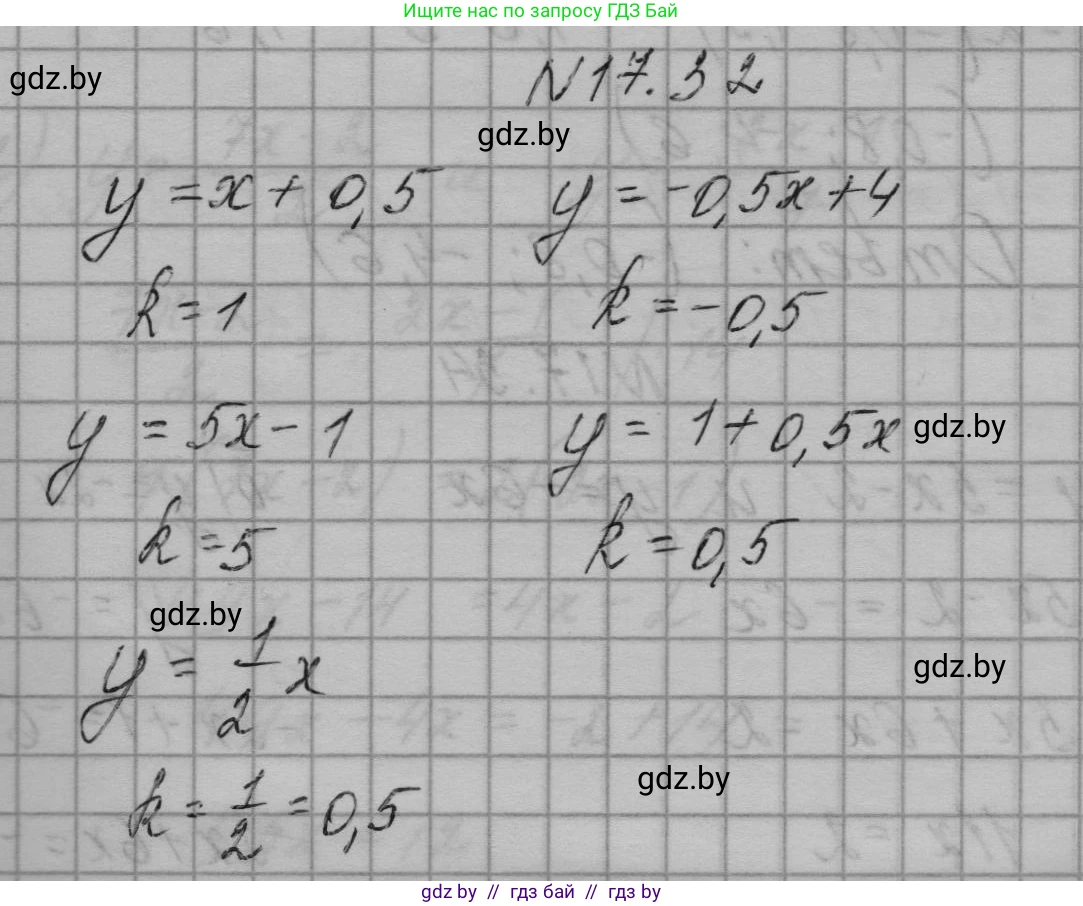 Ищите нас по запросу ГДЗ Бай
gdz.by
N 17.32
gdz.by
y = x + 0,5
y = -0,5x + 4
k = 1
k = -0,5
y = 5x - 1
y = 1 + 0,5x
gdz.by
k = 5
k = 0,5
gdz.by
y = 1/2 x
gdz.by
gdz.by
k = 1/2 = 0,5
gdz.by // гдз бай // гдз by